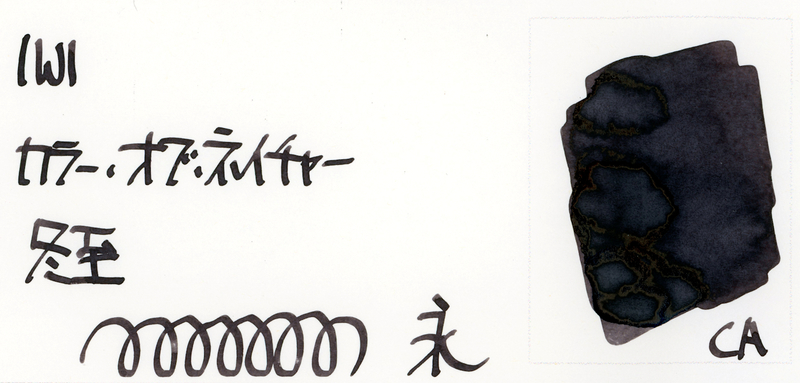 IWI
カラー・オブ・ネイチャー
冬至
永
CA